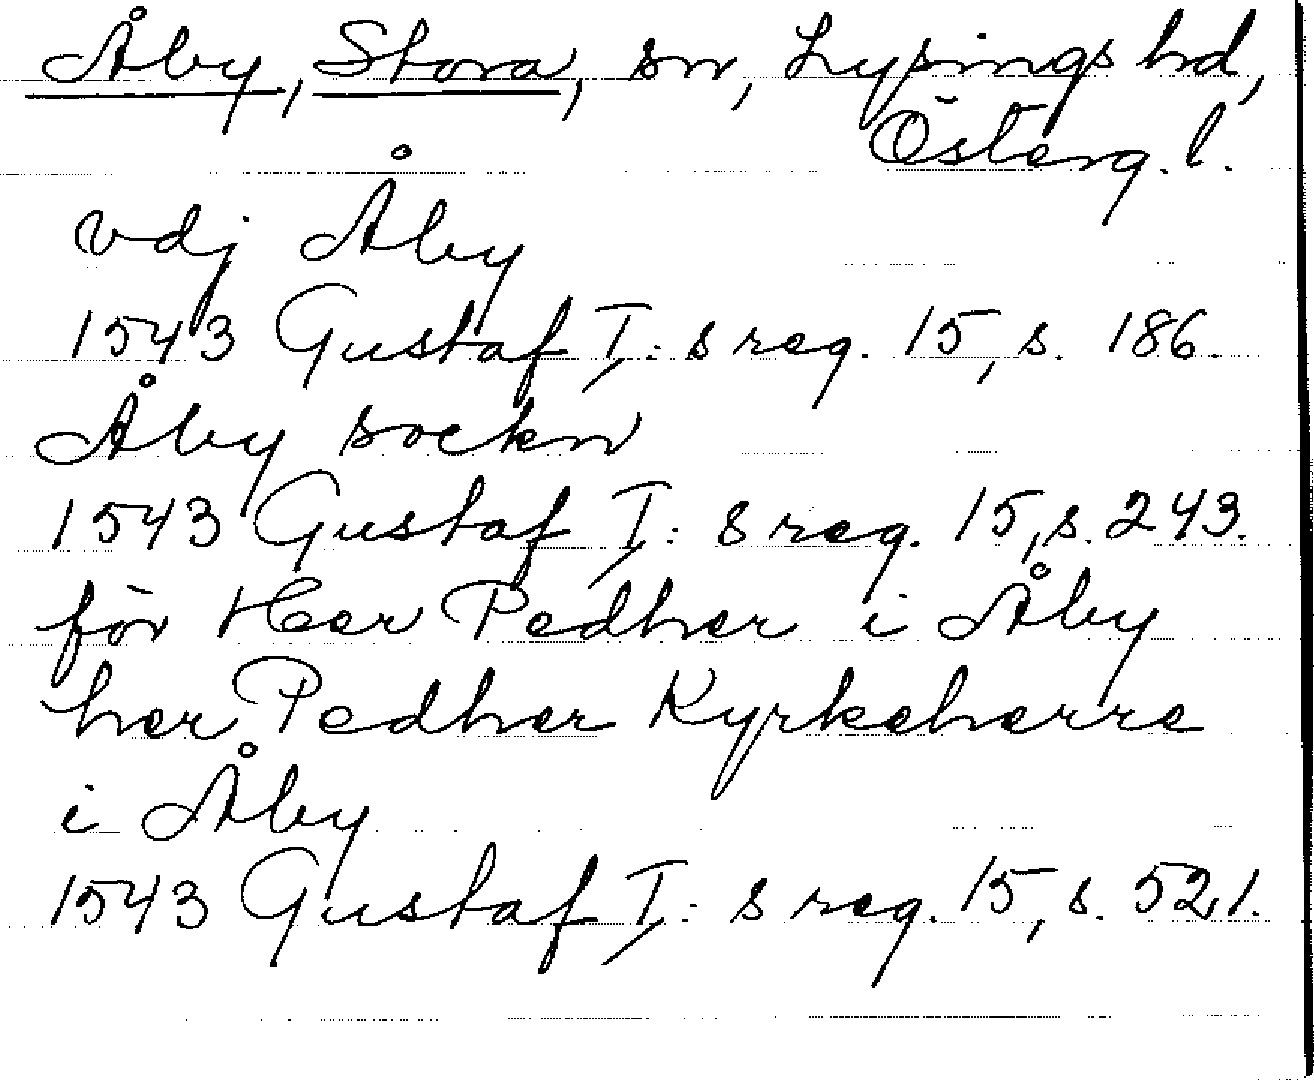 Åby, Stora, sn, Lysings hd,
Österg. l.
vdj Åby
1543 Gustaf I: s reg. 15, s. 186.
Åby sockn
1543 Gustaf I: s reg. 15, s. 243.
för Her Pedher i Åby
her Pedher Kyrkeherre
i Åby
1543 Gustaf I: s reg. 15, s. 521.